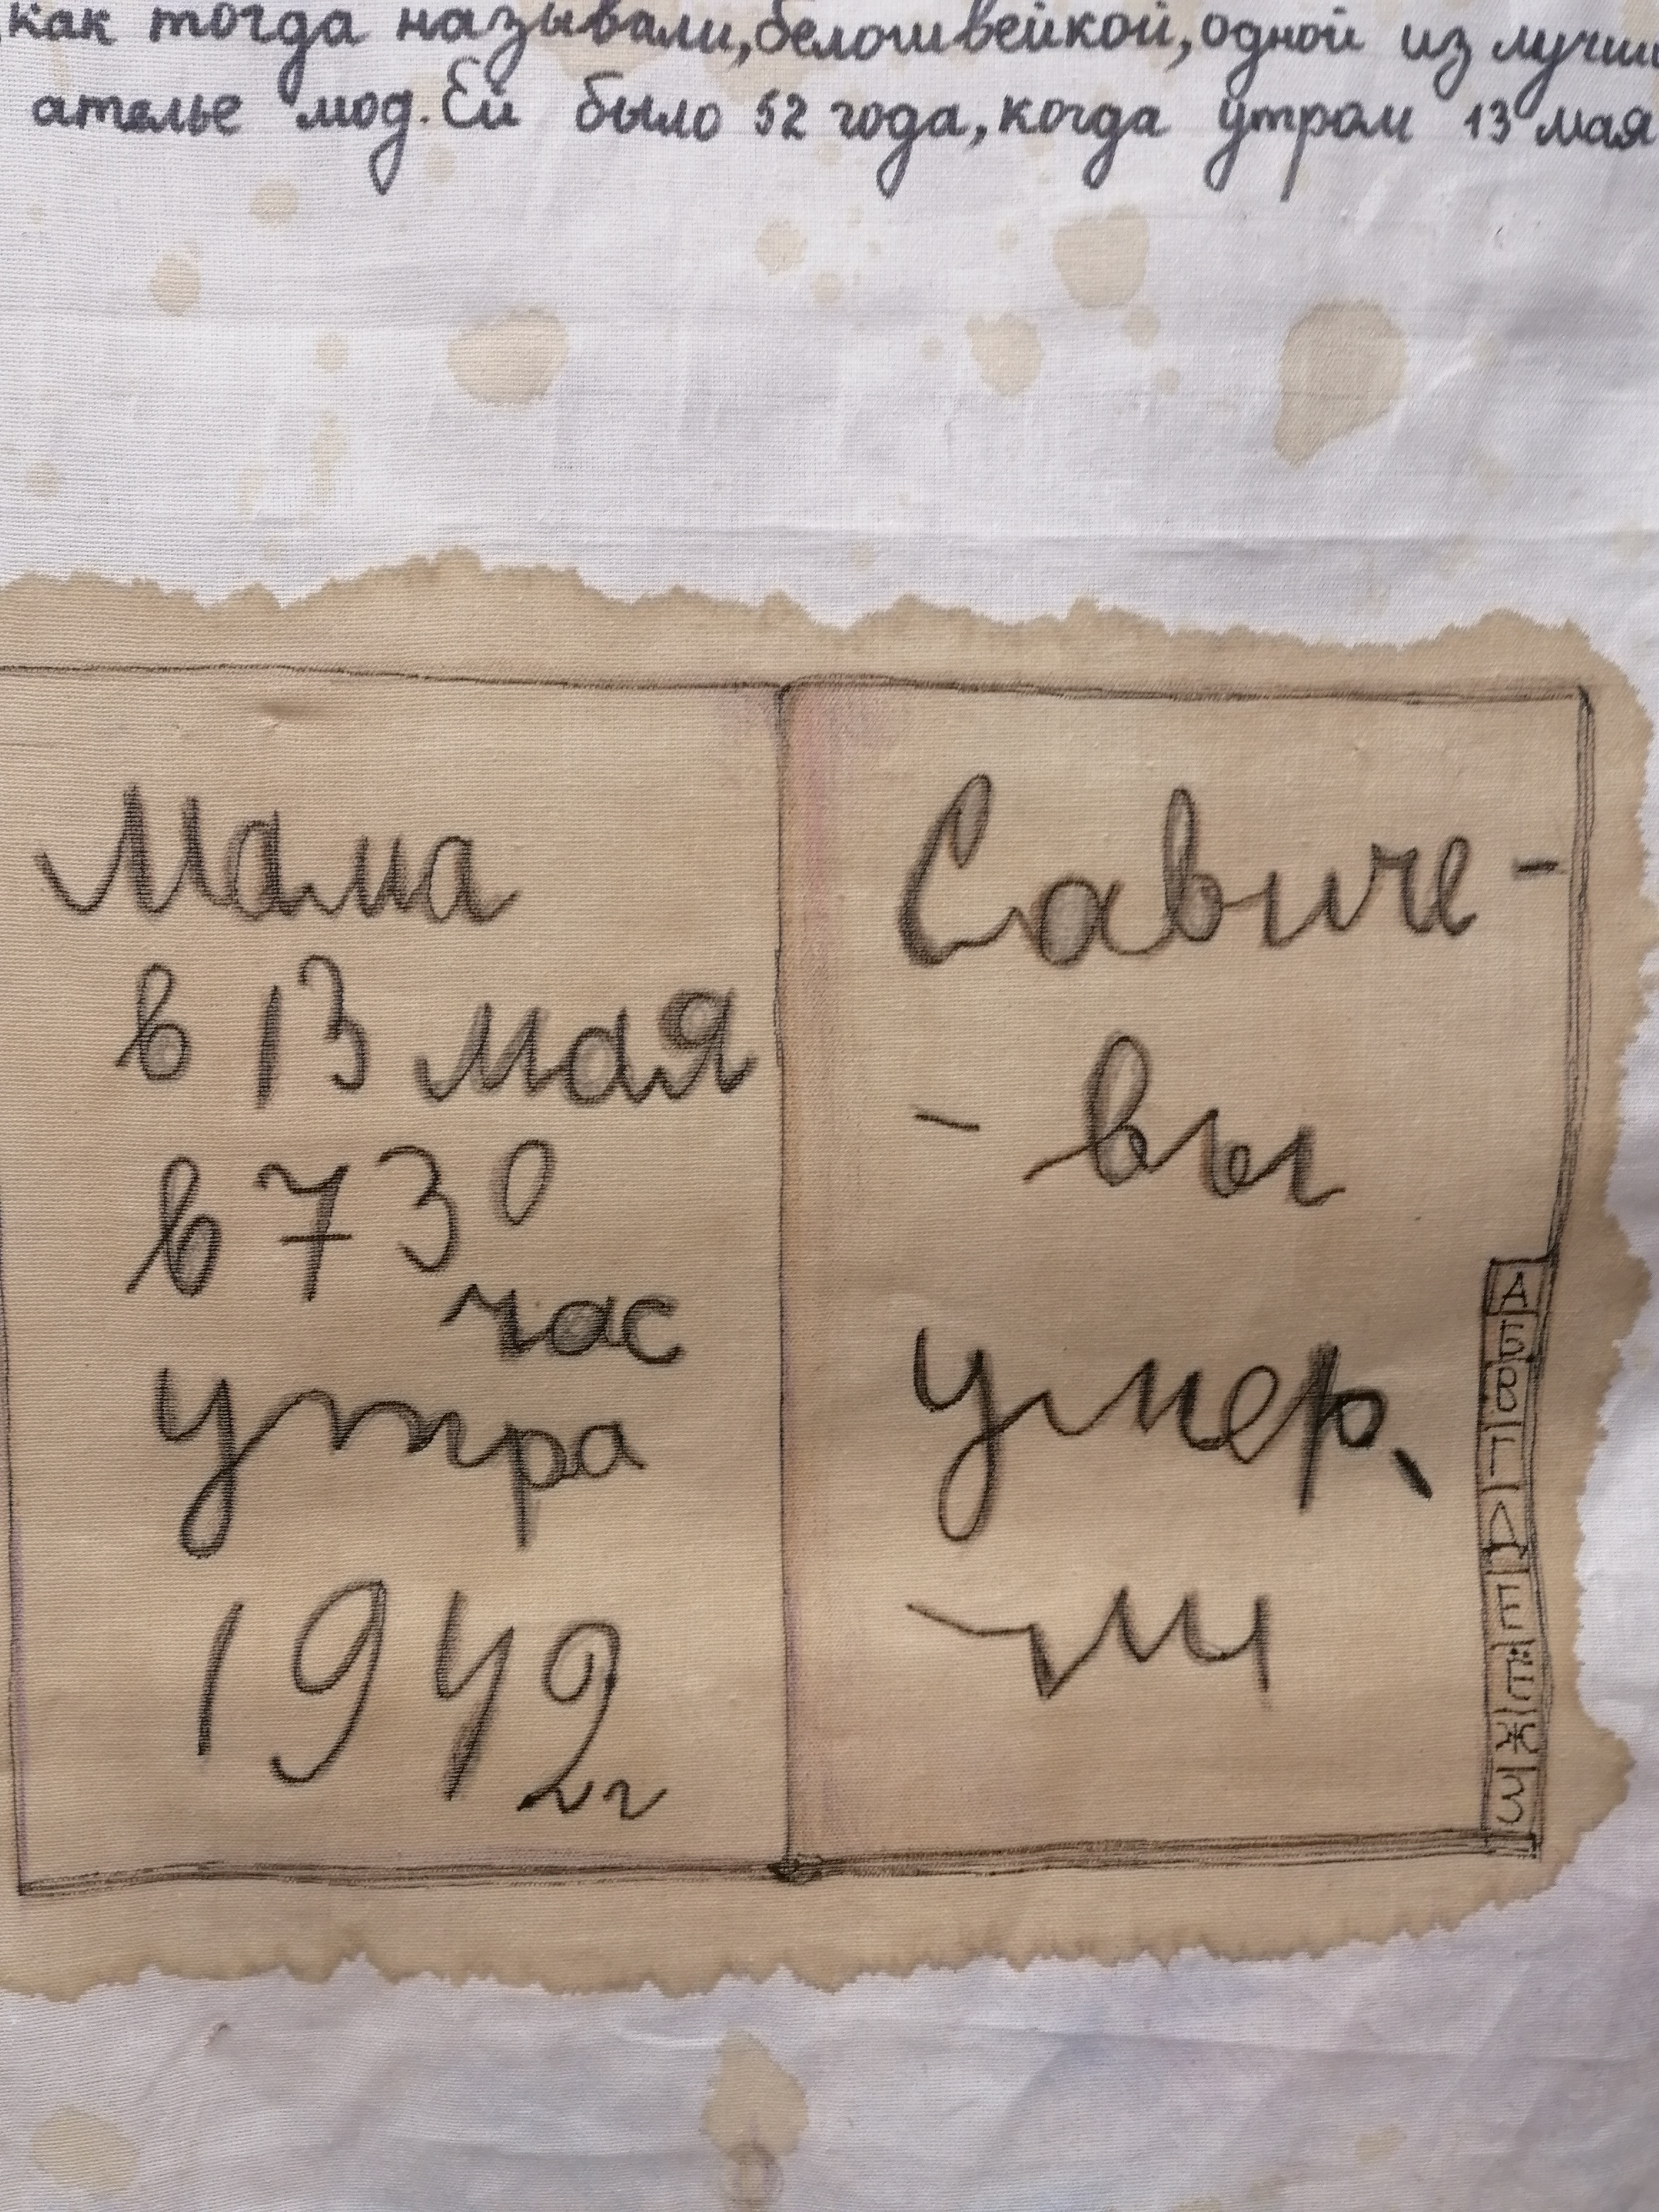 как тогда называли, белошвейкой, одной из лучш
ателье мод. Ей было 52 года, когда утром 13 мая
Мама
в 13 мая
в 7 30
час
утра
1942 г
Савиче-
- вы
умер,
-ли
А
Б
В
Г
Д
Е
Ё
Ж
З